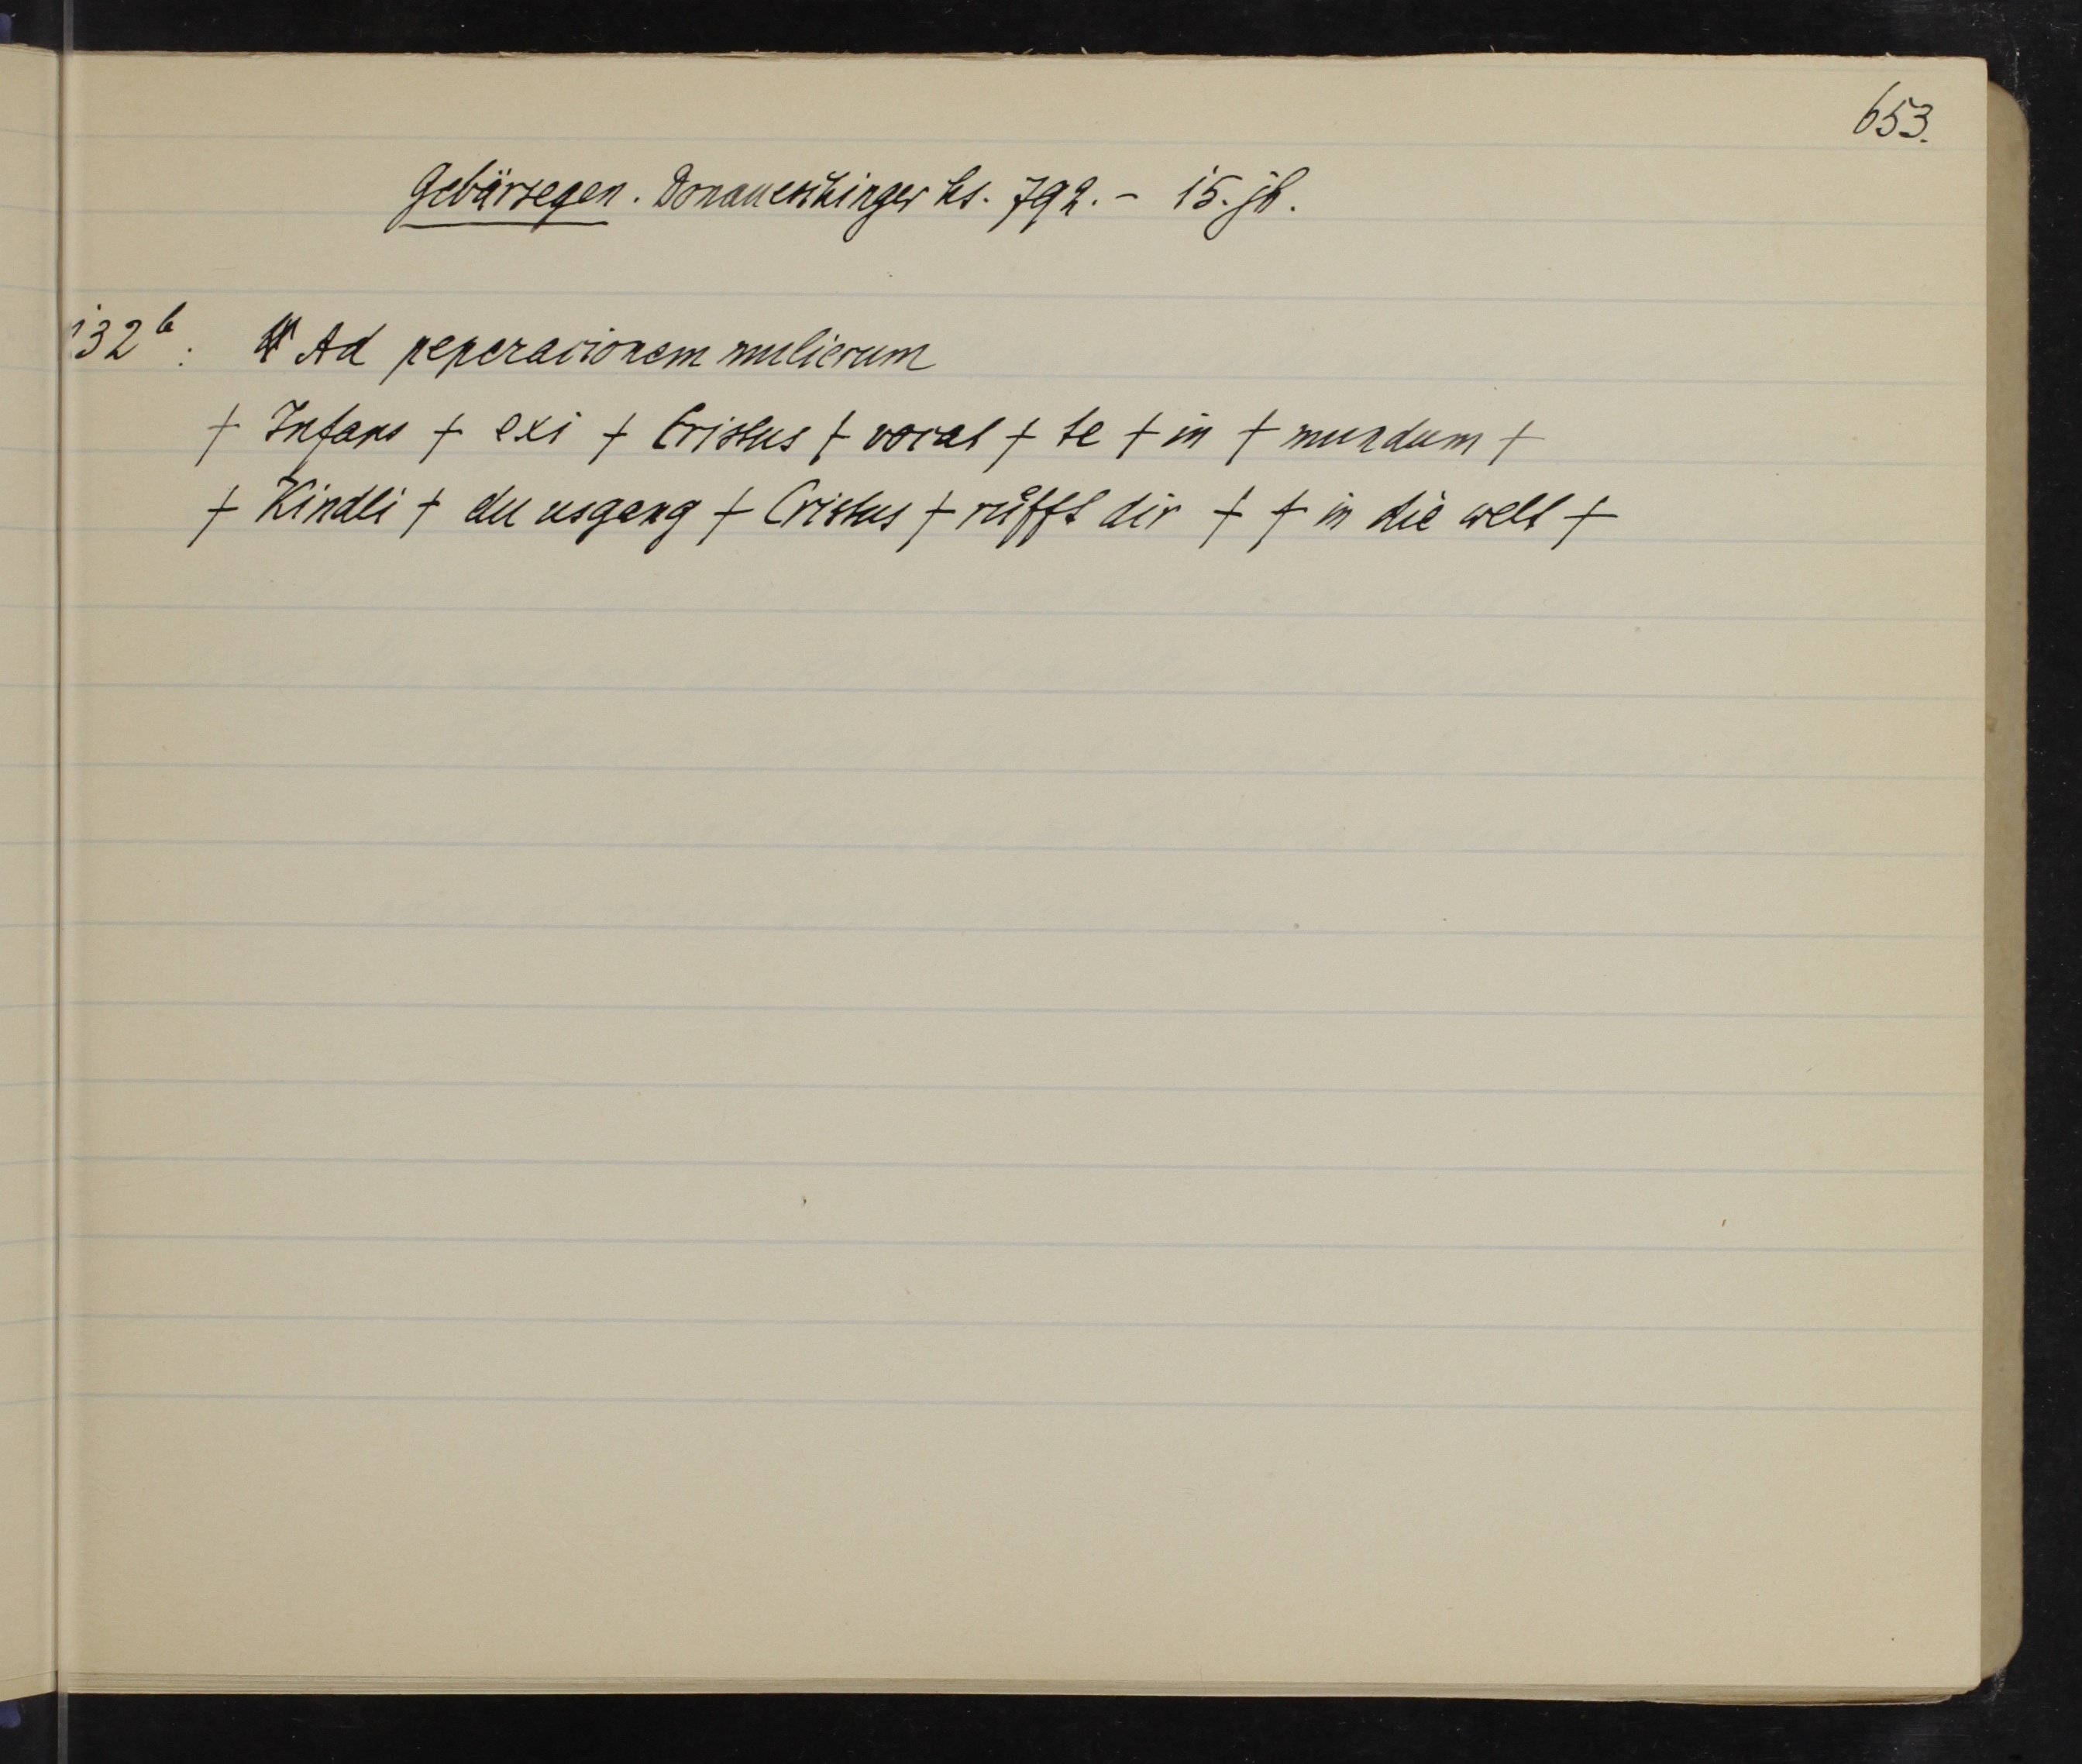 653.
Gebärsegen. Donaueschinger hs. 792. - 15. jh.
132b: Ad pepericionem mulierum
+ Infans + exi + Cristus + vocat + te + in + mundum +
+ Kindli + du usgang + Cristus + rüfft dir + + in die welt +